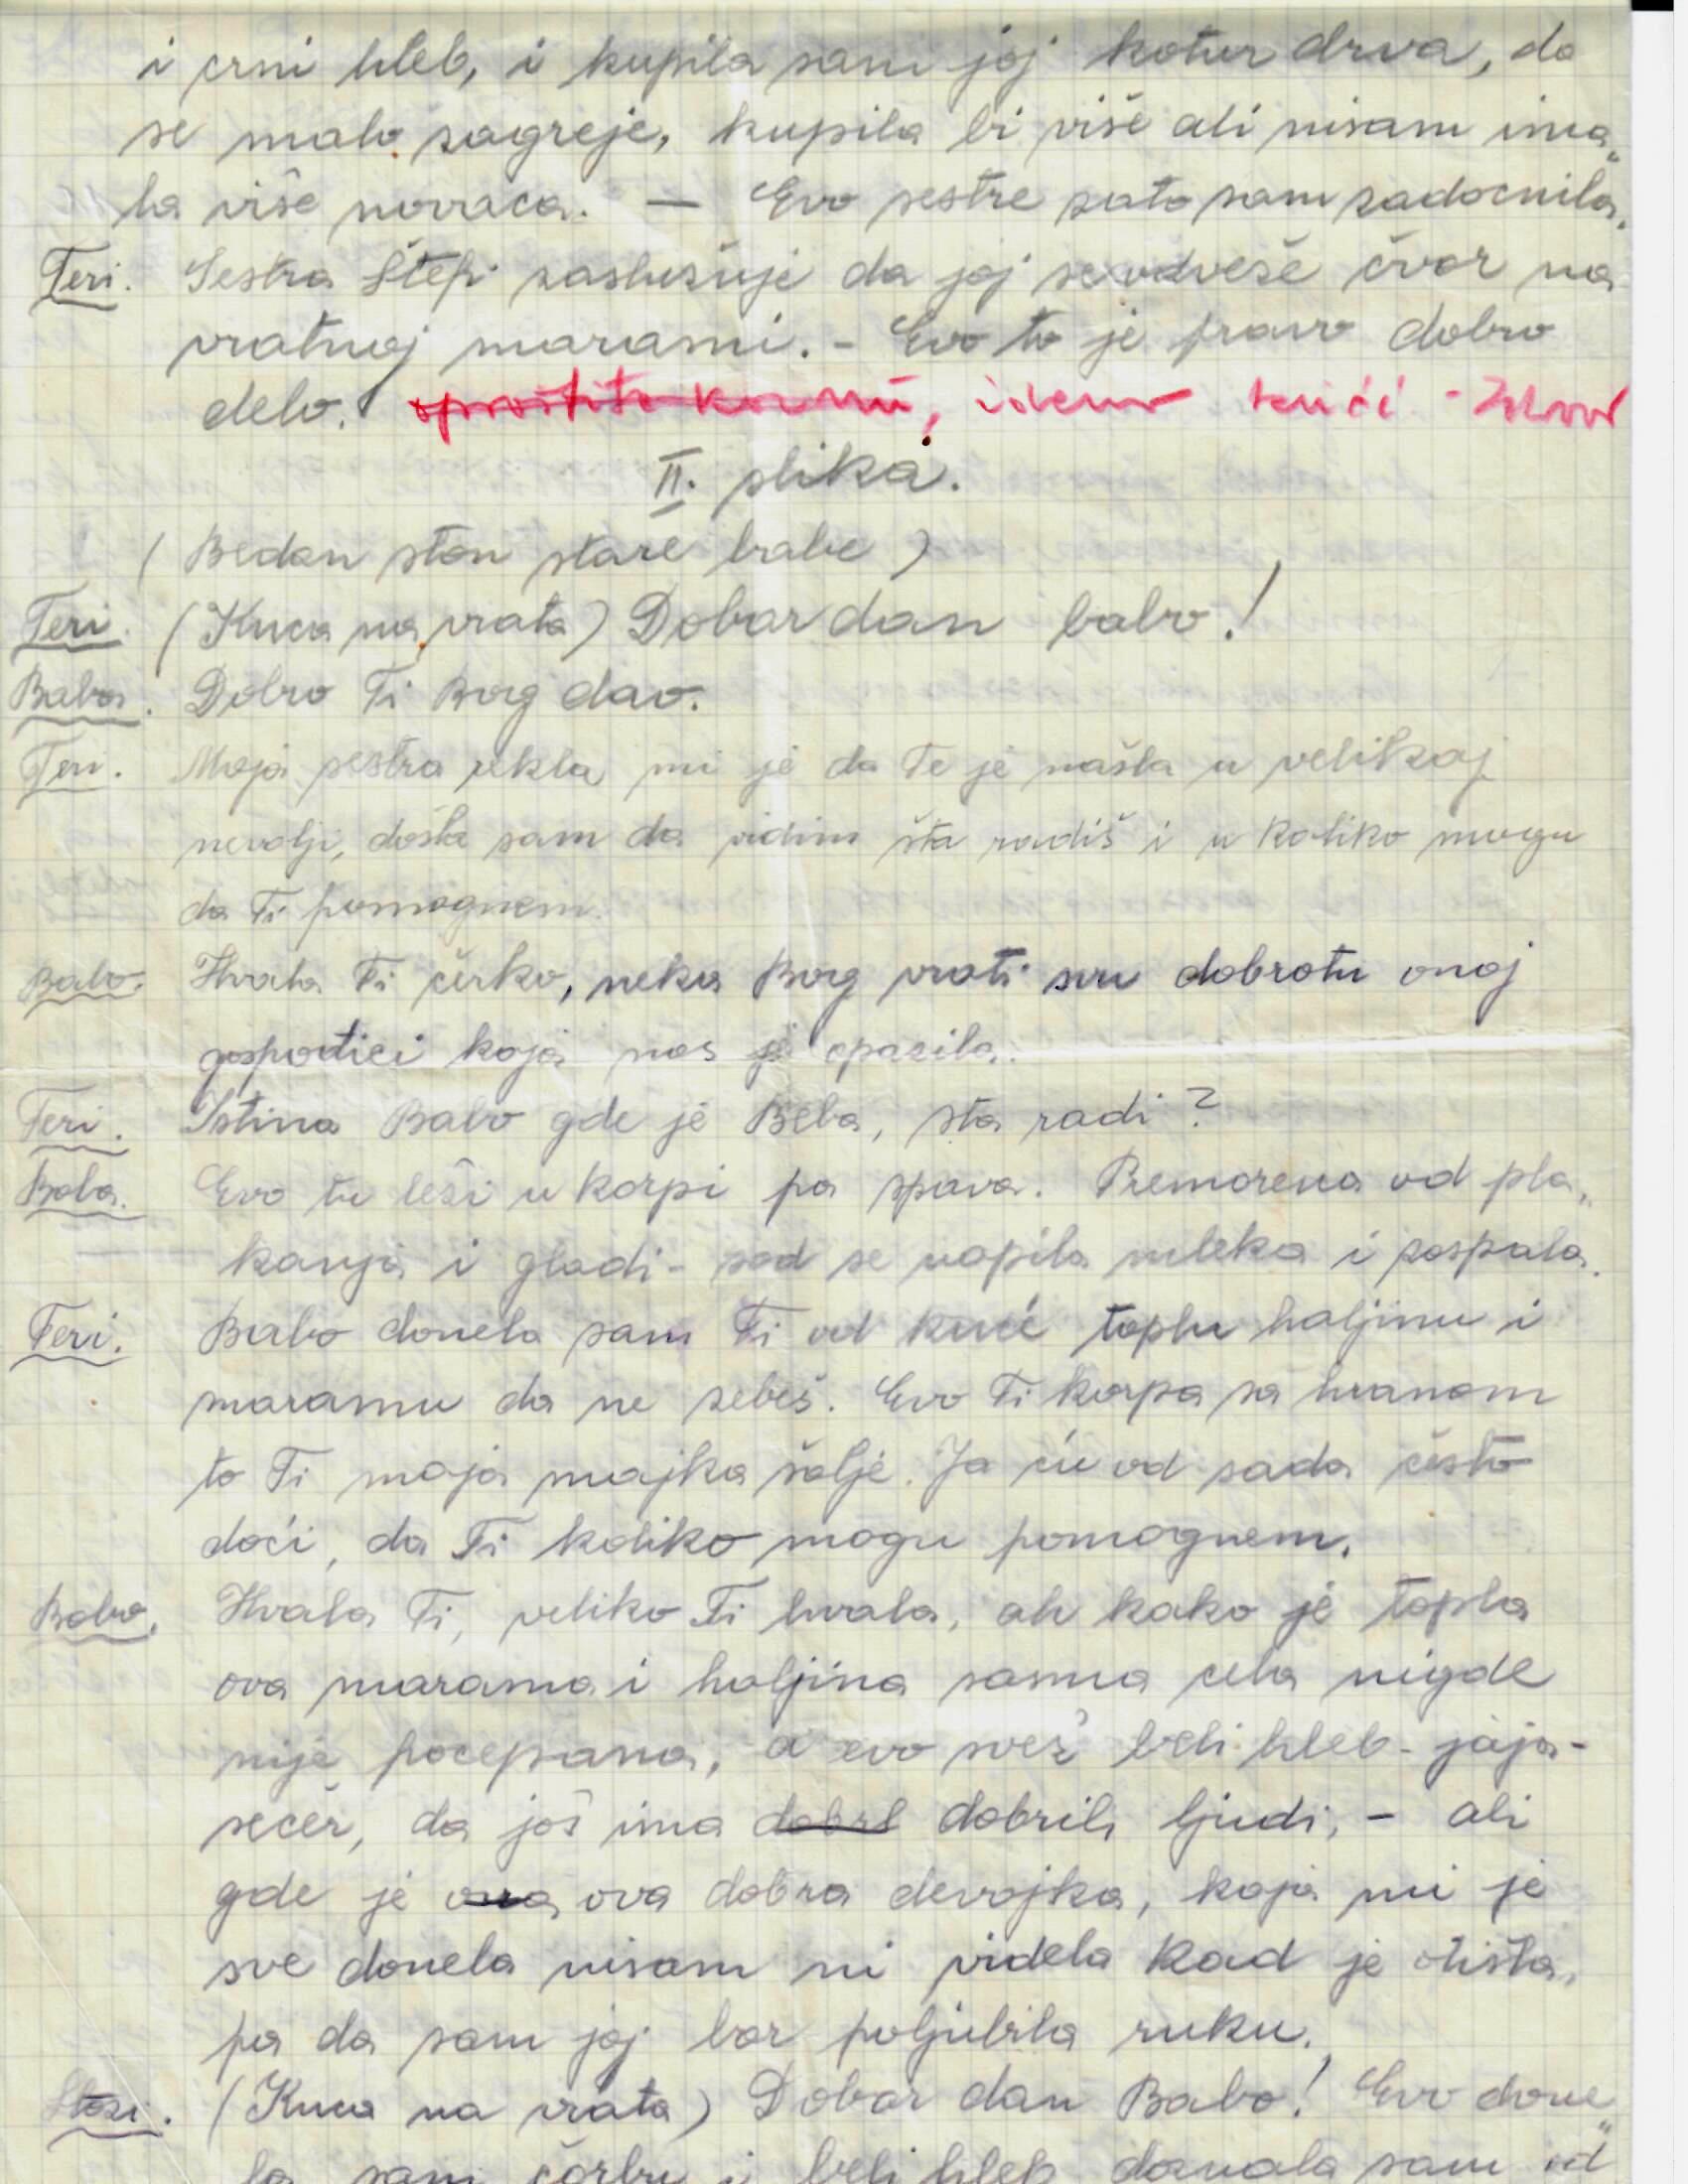 i crni hleb, i kupila sam joj kotur drva, da
se malo zagreje, kupila bi više ali nisam ima„
la više novaca. — Evo sestre zato sam zadocnila.
Teri. Sestra Štefi zaslužuje da joj se odveže čvor na
vratnoj marami. - Evo to je pravo dobro
delo. idemo kući - Zdravo
II. slika.
(Bedan stan stare babe)
Teri. (Kuca na vrata) Dobar dan babo!
Baba. Dobro Ti Bog dao.
Teri. Moja sestra rekla mi je da Te je našla u velikoj
nevolji, došla sam da vidim šta radiš i u koliko mogu
da Ti pomognem.
Baba. Hvala Ti ćerko, neka Bog vrati svu dobrotu onoj
gospodici koja nas je opazila.
Teri. Istina Babo gde je Beba, šta radi?
Baba. Evo tu leži u korpi pa spava. Premorena od pla„
kanja i gladi - sad se napila mleka i zaspala.
Teri. Babo donela sam Ti od kuće toplu haljinu i
maramu da ne zebeš. Evo Ti korpa sa hranom
to Ti moja majka šalje. Ja ću od sada često
doći, da Ti koliko mogu pomognem.
Baba. Hvala Ti, veliko Ti hvala, ah kako je topla
ova marama i haljina sasma cela nigde
nije pocepana, a evo svež beli hleb - jaja -
šećer, da još ima dobrih ljudi, - ali
gde je ona ova dobra devojka, koja mi je
sve donela nisam ni videla kad je otišla,
pa da sam joj bar poljubila ruku.
(Kuca na vrata) Dobar dan Babo! Evo done„
la sam čorbu i beli hleb sam od